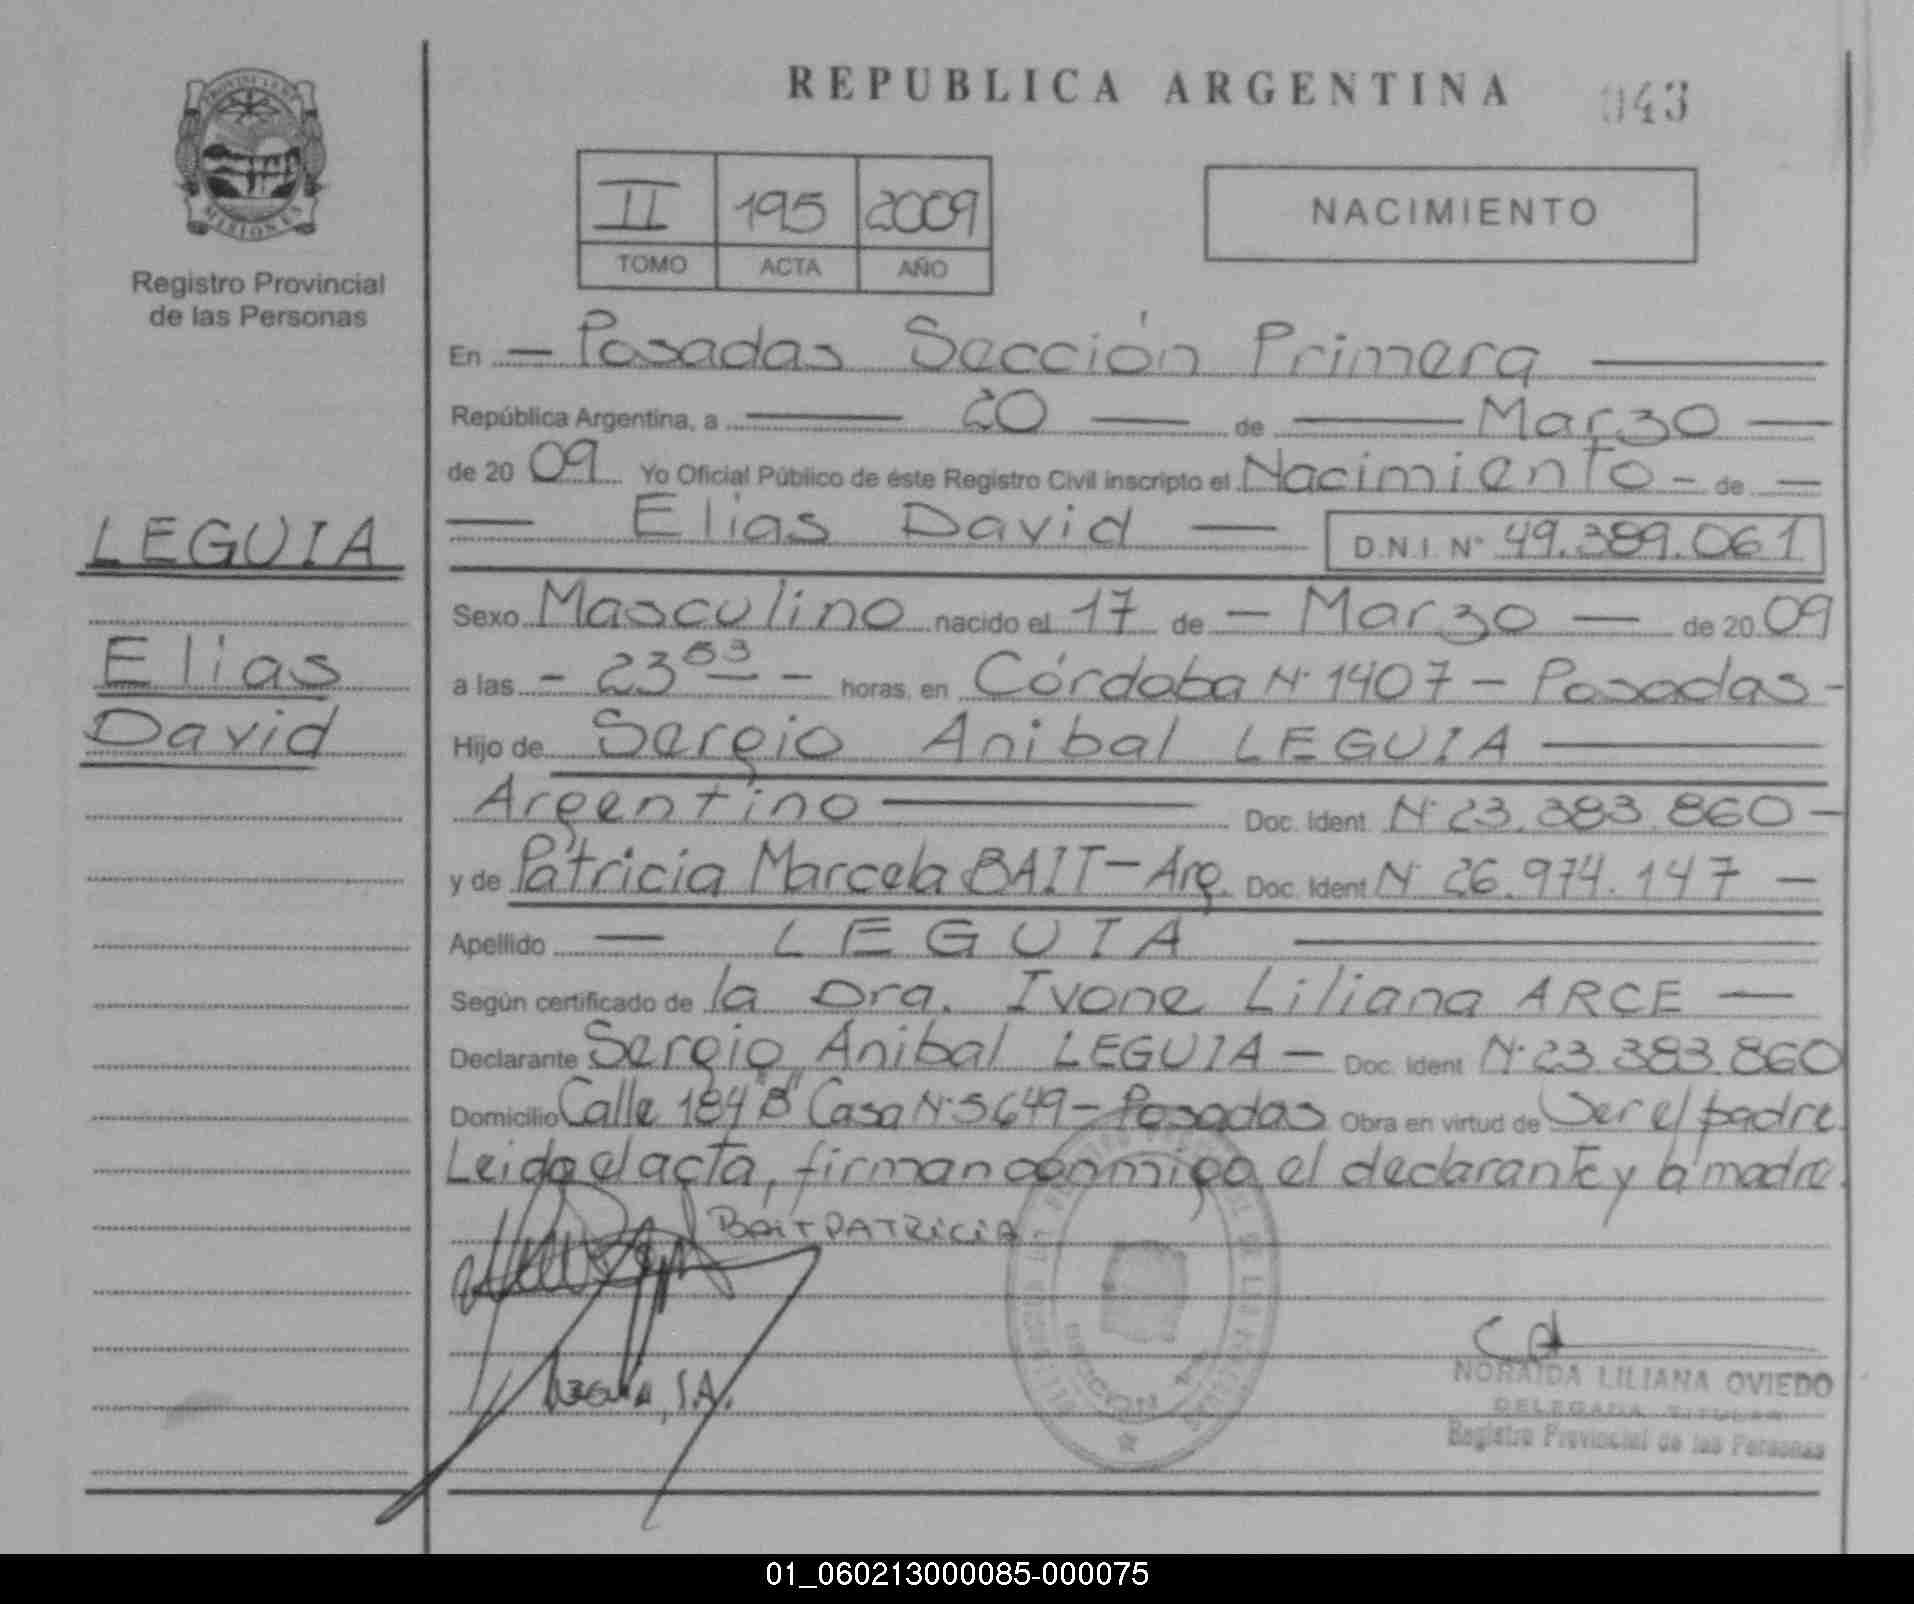 REPUBLICA ARGENTINA
043
PROVINCIA DE
MISIONES
Registro Provincial
de las Personas
II 195 2009
TOMO ACTA AÑO
NACIMIENTO
En — Posadas Sección Primera —
República Argentina, a — 20 — de — Marzo —
de 20 09 Yo Oficial Público de éste Registro Civil inscripto el Nacimiento - de —
LEGUIA
— Elias David — D.N.I. N° 49.389.061
Sexo Masculino nacido el 17 de — Marzo — de 20 09
Elias
a las - 23 53 - horas, en Córdoba N° 1407 - Posadas -
David
Hijo de Sergio Anibal LEGUIA —
Argentino — Doc. Ident N° 23.383.860 —
y de Patricia Marcela BAIT - Arg. Doc. Ident N° 26.974.147 —
Apellido — LEGUIA —
Según certificado de la Dra. Ivone Liliana ARCE —
Declarante Sergio Anibal LEGUIA — Doc. Ident N° 23.383.860
Domicilio Calle 184 "B" Casa N° 5649 - Posadas Obra en virtud de Ser el padre.
Leida el acta, firman conmigo el declarante y la madre.
BAIT PATRICIA
Leguia, S.A.
NORAIDA LILIANA OVIEDO
DELEGADA TITULAR
Registro Provincial de las Personas
01_060213000085-000075